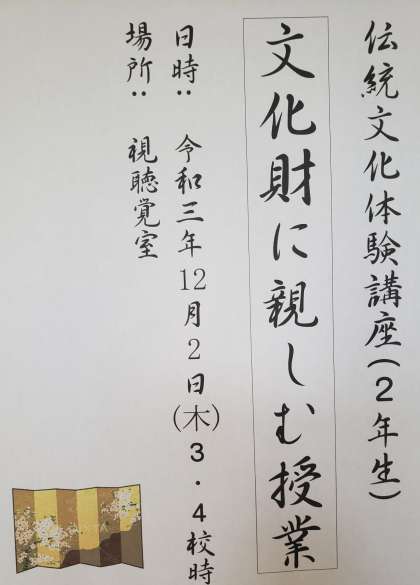 伝統文化体験講座(2年生)
文化財に親しむ授業
日時： 令和三年12月2日(木)3・4校時
場所： 視聴覚室